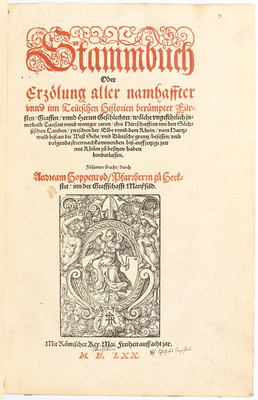 Stammbuch
Oder
Erzölung aller namhaffter
vnnd inn Teütschen Historien berümpter Für-
sten/ Graffen/ vnnd Herren Geschlechter/ wölche vngefehrlich in-
nerhalb Tausent vnnd weniger jaren/ jhre Herrschafften inn den Säch-
sischen Landen/ zwischen der Elbe vnnd dem Rhein/ vom Hartz-
wald biß an die West Sehe/ vnd Dänische grentz besessen/ vnd
volgends jhren nachkommenden biß auff jetzige zeit
mit Rhům zů besitzen haben
hinderlassen.
Zůsamen bracht/ durch
Andream Hoppenrod/ Pfarrherrn zů Heck-
stet/ inn der Graffschafft Manßfeld.
Mit Römischer Key. Mai. Freiheit auff acht jar.
M. D. LXX.